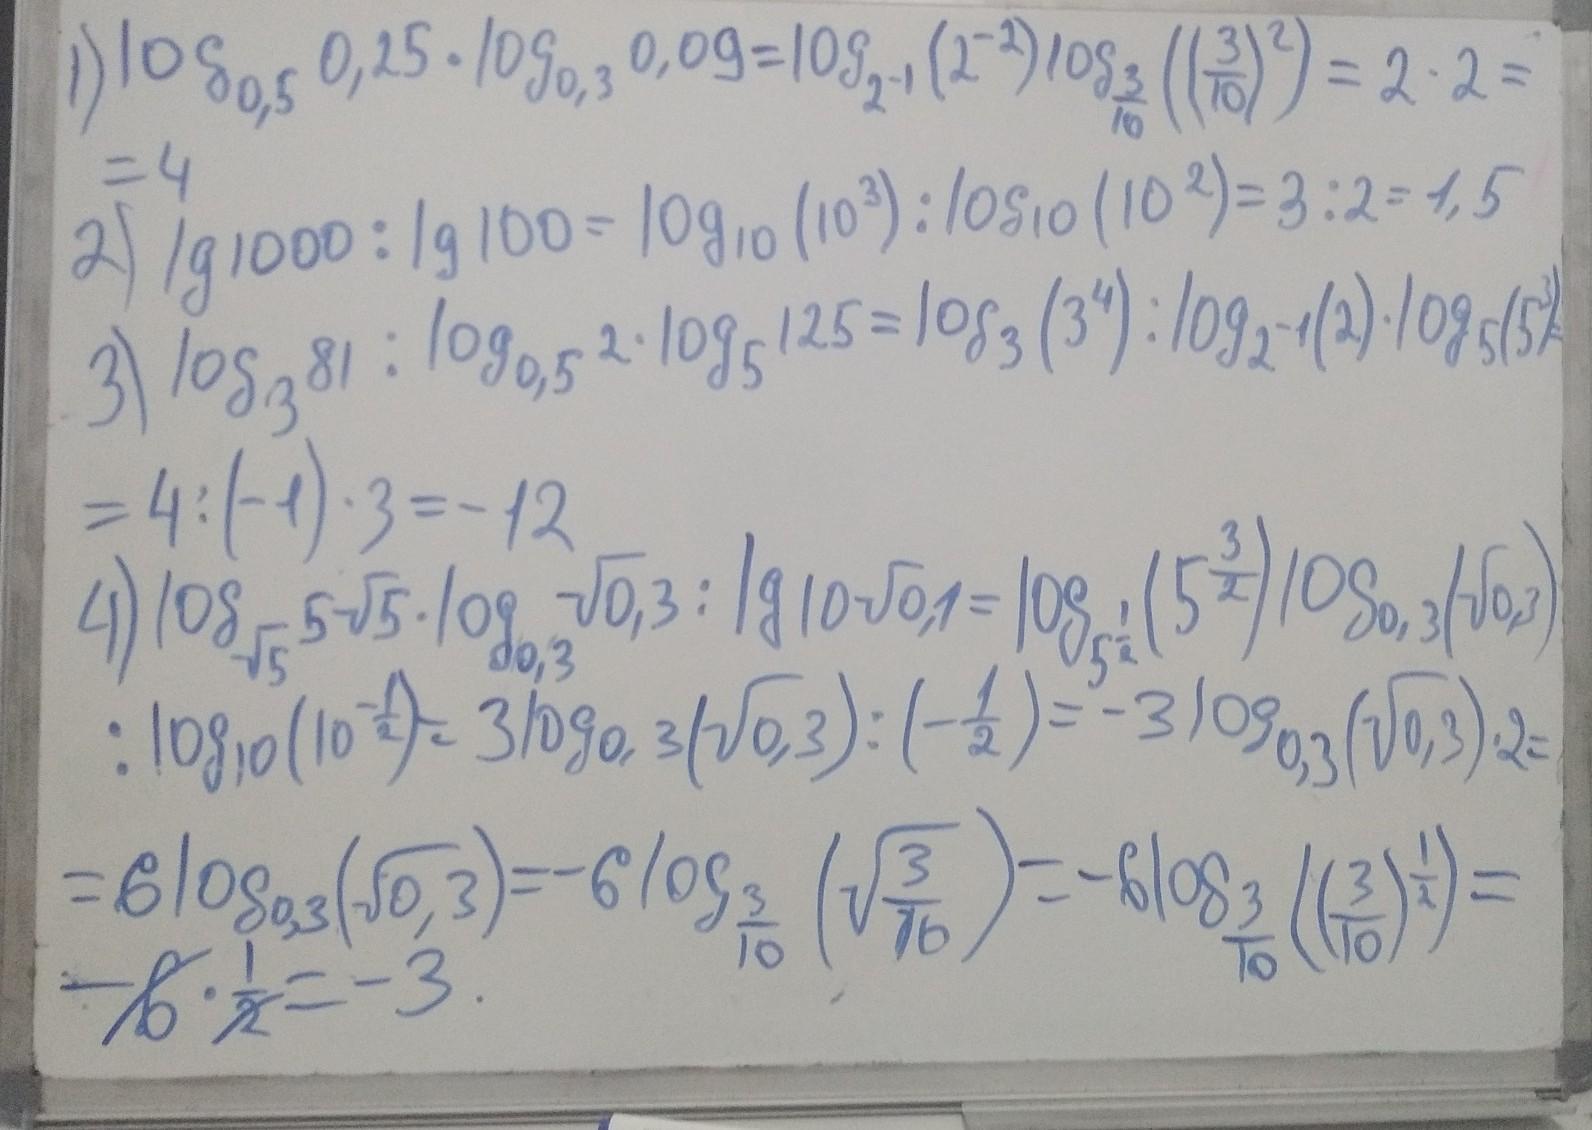 1) log₀,₅ 0,25 · log₀,₃ 0,09 = log₂₋₁ (2⁻²) log_(3/10) ((3/10)²) = 2 · 2 =
= 4
2) lg 1000 : lg 100 = log₁₀ (10³) : log₁₀ (10²) = 3 : 2 = 1,5
3) log₃ 81 : log₀,₅ 2 · log₅ 125 = log₃ (3⁴) : log₂₋₁ (2) · log₅ (5³) =
= 4 : (-1) · 3 = -12
4) log_√5 5√5 · log₀,₃ √0,3 : lg 10√0,1 = log_5^(1/2) (5^(3/2)) log₀,₃ (√0,3)
: log₁₀ (10^(-1/2)) = 3 log₀,₃ (√0,3) : (-1/2) = -3 log₀,₃ (√0,3) · 2 =
= 6 log₀,₃ (√0,3) = -6 log_(3/10) (√(3/10)) = -6 log_(3/10) ((3/10)^(1/2)) =
-6 · 1/2 = -3.